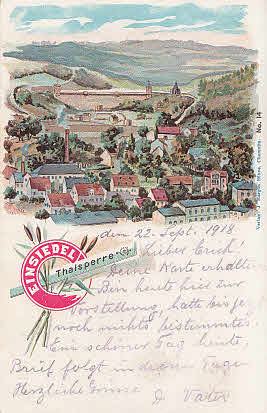 No. 14
EINSIEDEL
Thalsperre.
den 22. Sept. 1918
Lieber Erich!
Deine Karte erhalten
Bin heute hier zur
Vorstellung, hatte bisjez
noch nichts bestimmtes.
Ein schöner Tag heute,
Brief folgt in diesen Tagen
Herzliche Grüsse
D Vater